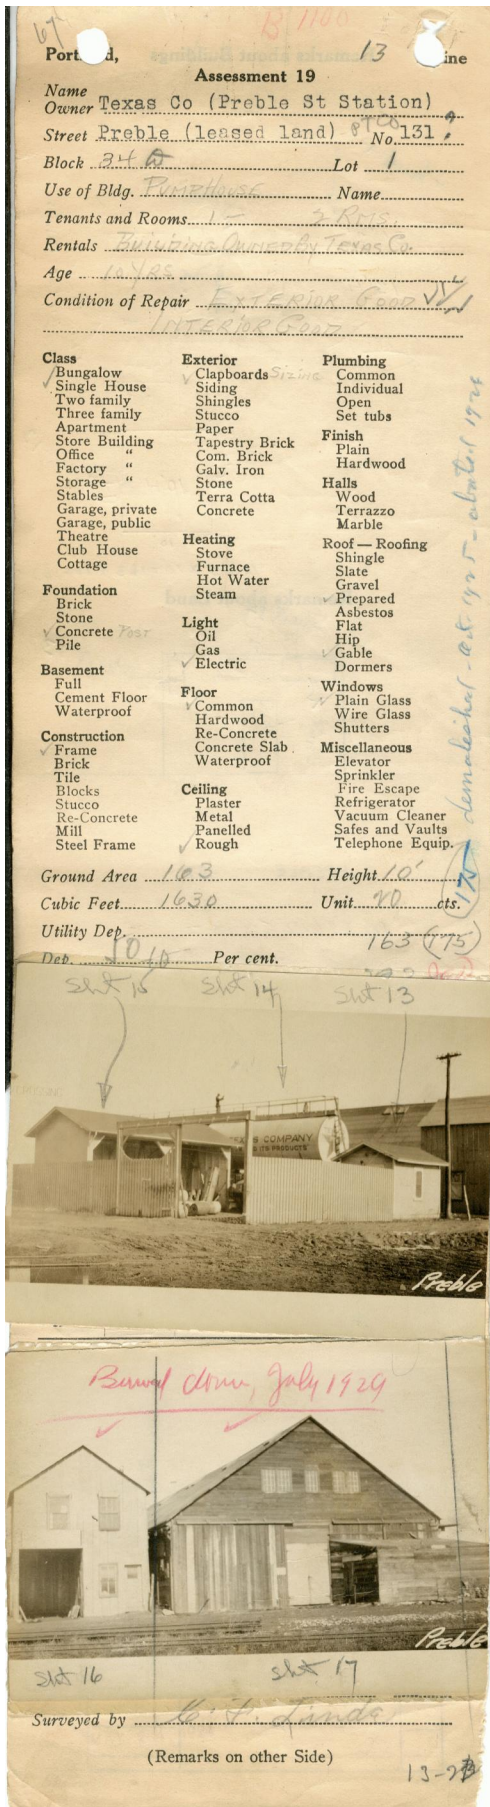 67
B 1100
13
Portland,
ine
Assessment 19
Name
Owner Texas Co (Preble St Station)
Street Preble (leased land) No. 131
Block 34 Lot 1
Use of Bldg. PUMPHOUSE Name
Tenants and Rooms 1 - 2 RMS.
Rentals BUILDING OWNED BY TEXAS CO.
Age 10 YRS
Condition of Repair EXTERIOR GOOD
INTERIOR GOOD
Class
✓ Bungalow
Single House
Two family
Three family
Apartment
Store Building
Office "
Factory "
Storage "
Stables
Garage, private
Garage, public
Theatre
Club House
Cottage
Foundation
Brick
Stone
✓ Concrete Post
Pile
Basement
Full
Cement Floor
Waterproof
Construction
✓ Frame
Brick
Tile
Blocks
Stucco
Re-Concrete
Mill
Steel Frame
Exterior
✓ Clapboards Siding
Siding
Shingles
Stucco
Paper
Tapestry Brick
Com. Brick
Galv. Iron
Stone
Terra Cotta
Concrete
Heating
Stove
Furnace
Hot Water
Steam
Light
Oil
Gas
✓ Electric
Floor
✓ Common
Hardwood
Re-Concrete
Concrete Slab
Waterproof
Ceiling
Plaster
Metal
Panelled
✓ Rough
Plumbing
Common
Individual
Open
Set tubs
Finish
Plain
Hardwood
Halls
Wood
Terrazzo
Marble
Roof — Roofing
Shingle
Slate
Gravel
✓ Prepared
Asbestos
Flat
Hip
✓ Gable
Dormers
Windows
✓ Plain Glass
Wire Glass
Shutters
Miscellaneous
Elevator
Sprinkler
Fire Escape
Refrigerator
Vacuum Cleaner
Safes and Vaults
Telephone Equip.
175 demolished - abated 1929
Ground Area 163 Height 10'
Cubic Feet 1630 Unit 20 cts.
Utility Dep. 163 (175)
Dep. Per cent.
Sht 15 Sht 14 Sht 13
S COMPANY
PRODUCTS
Preble
Burned down, July 1929
Preble
Sht 16 Sht 17
Surveyed by
(Remarks on other Side)